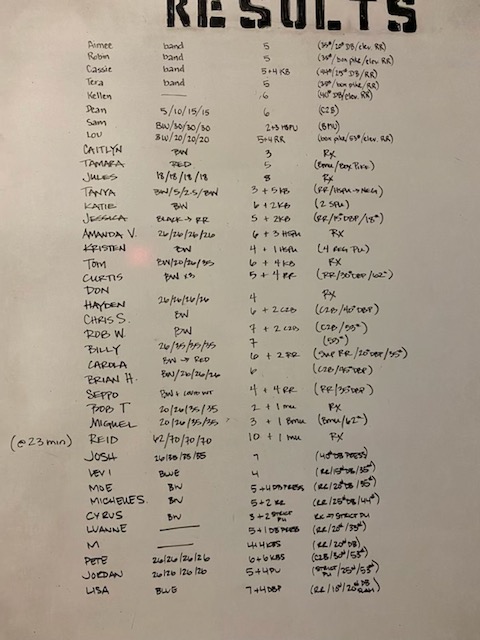 RESULTS
Aimee band 5 (35#/20# DB/elev. RR)
Robin band 5 (35#/box pike/elev. RR)
Cassie band 5+4 KB (44#/25# DB/RR)
Tera band 5 (35#/box pike/RR)
Kellen — 6 (40# DB/elev. RR)
Dean 5/10/15/15 6 (C2B)
Sam BW/30/30/30 2+3 HSPU (BMU)
Lou BW/20/20/20 5+4 RR (box pike/53#/elev. RR)
CAITLYN BW 3 RX
TAMARA RED 5 (BMU/BOX PIKE)
JULES 18/18/18/18 8 RX
TANYA BW/5/2.5/BW 3 + 5 KB (RR/HSPU → NEG)
KATIE BW 6 + 2 KB
JESSICA BLACK → RR 5 + 2 KB (RR/15# DBP/18#)
AMANDA V. 26/26/26/26 6 + 3 HSPU RX
KRISTEN BW 4 + 1 HSPU (4 REG PU)
TOM BW/20/26/35 6 + 4 KB RX
CURTIS BW x3 5 + 4 RR (RR/30# DBP/62#)
DON
HAYDEN 26/26/26/26 4 RX
CHRIS S. BW 6 + 2 C2B (C2B/40# DBP)
ROB W. BW 7 + 2 C2B (C2B/55#)
BILLY 26/35/35/35 7 (53#)
CAROLA BW → RED 6 + 2 RR (RR/20# DBP/35#)
BRIAN H. BW/20/26/26 6 (C2B/45# DBP)
SEPPO BW + 4 + 4 RR (RR/35# DBP)
BOB T 20/26/35/35 2 + 1 MU RX
MIGUEL 20/26/35/35 3 + 1 BMU (BMU/62#)
(@ 23 min) REID 62/70/70/70 10 + 1 MU RX
JOSH 26/35/35/35 7 (40# DB PRESS)
LEVI BLUE 4 (RR/15# DB/35#)
MOE BW 5+4 DB PRESS (RR/20# DB/35#)
MICHELLE S. BW 5+2 RR (RR/25# DB/44#)
CYRUS BW 3+2 STRICT PU RX → STRICT PU
LUANNE — 5+1 DB PRESS (RR/20#/35#)
M — 4+4 KBS (RR/20# DB)
PETE 26/26/26/26 6+6 KBS (C2B/30#/53#)
JORDAN 26/26/26/26 5+4 PU (STRICT PU/25#/53#)
LISA BLUE 7+4 DBP (RR/18#/20# DB)